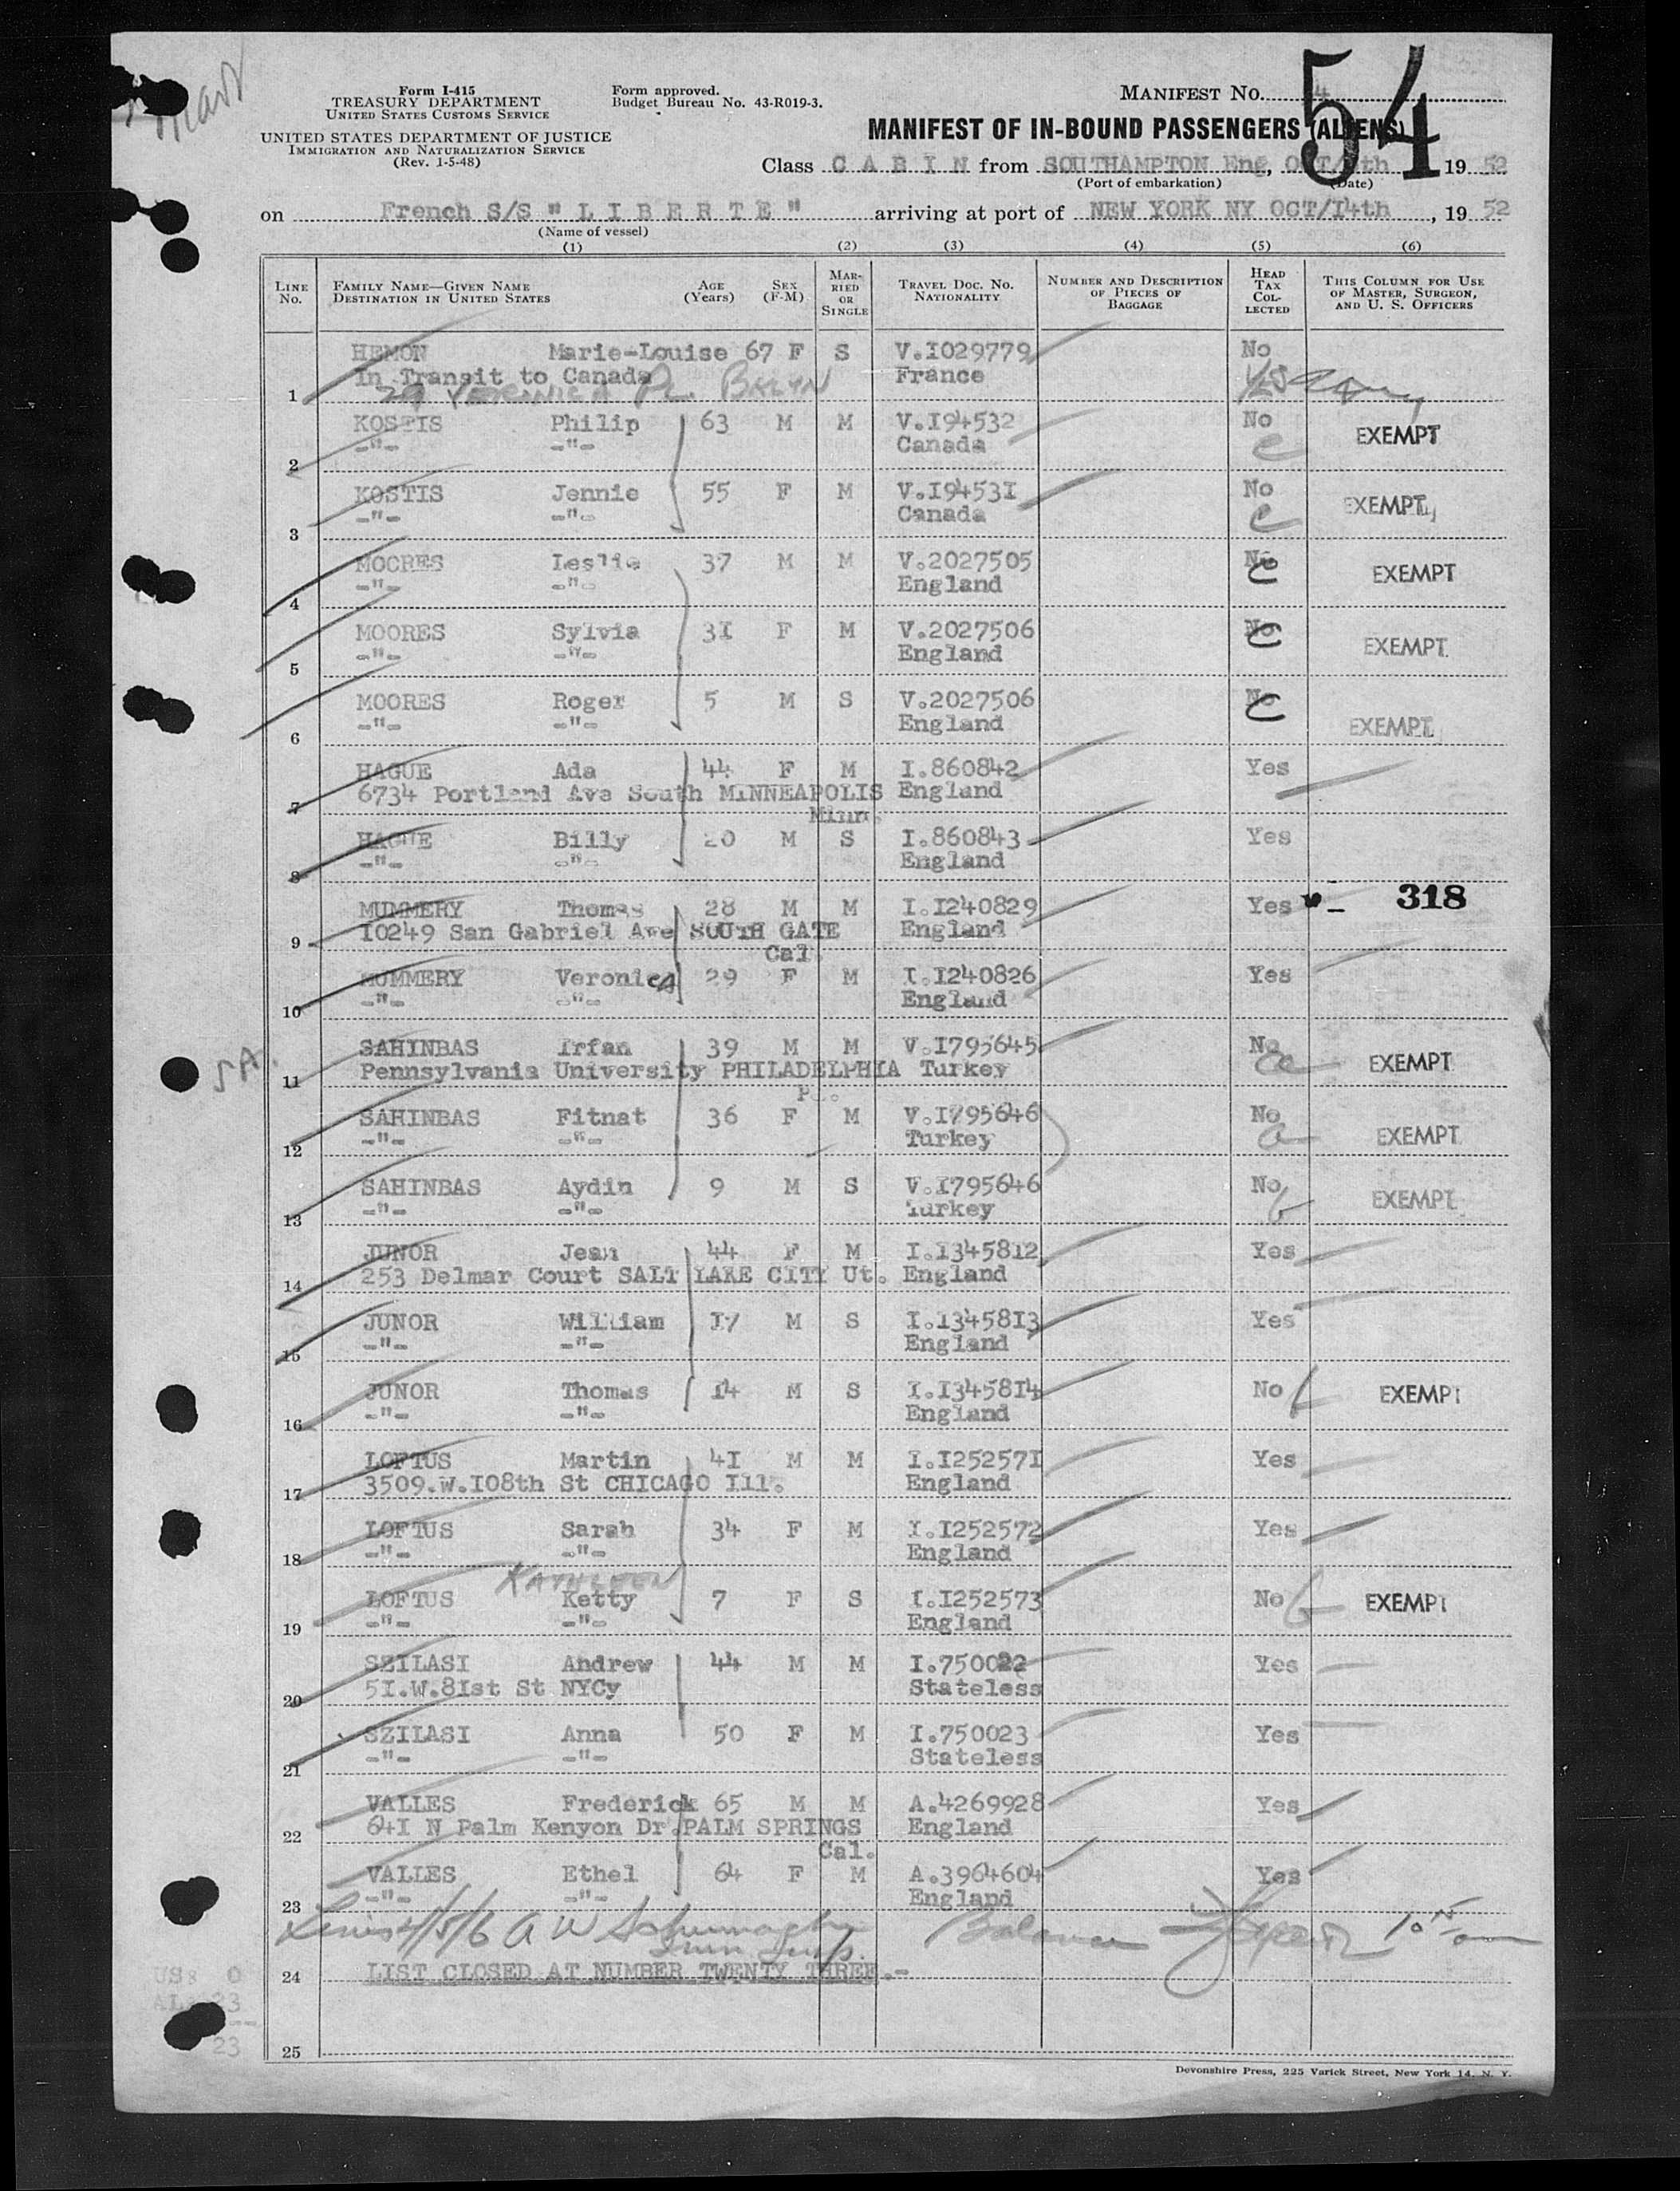 Form I-415
TREASURY DEPARTMENT
UNITED STATES CUSTOMS SERVICE
UNITED STATES DEPARTMENT OF JUSTICE
IMMIGRATION AND NATURALIZATION SERVICE
(Rev. 1-5-48)
Form approved.
Budget Bureau No. 43-R019-3.
MANIFEST NO. 4
54
MANIFEST OF IN-BOUND PASSENGERS (ALIENS)
Class C A B I N from SOUTHAMPTON Eng, OCT/ th 19 52
(Port of embarkation) (Date)
on French S/S " L I B E R T E " arriving at port of NEW YORK NY OCT/I4th, 19 52
(Name of vessel)
(1) (2) (3) (4) (5) (6)
LINE NO. FAMILY NAME—GIVEN NAME DESTINATION IN UNITED STATES AGE (YEARS) SEX (F-M) MARRIED OR SINGLE TRAVEL DOC. NO. NATIONALITY NUMBER AND DESCRIPTION OF PIECES OF BAGGAGE HEAD TAX COLLECTED THIS COLUMN FOR USE OF MASTER, SURGEON, AND U. S. OFFICERS
HEMON Marie-Louise 67 F S V.I029779 No
In Transit to Canada France Yes
1 29 VERONICA PL. BKLYN
KOSTIS Philip 63 M M V.I94532 No
-"- -"- Canada C EXEMPT
2
KOSTIS Jennie 55 F M V.I9453I No
-"- -"- Canada C EXEMPT
3
MOORES Leslie 37 M M V.2027505 No
-"- -"- England C EXEMPT
4
MOORES Sylvia 3I F M V.2027506 No
-"- -"- England C EXEMPT
5
MOORES Roger 5 M S V.2027506 No
-"- -"- England C EXEMPT
6
HAGUE Ada 44 F M I.860842 Yes
6734 Portland Ave South MINNEAPOLIS England
7 Minn.
HAGUE Billy 20 M S I.860843 Yes
-"- -"- England
8
MUMMERY Thomas 28 M M I.I240829 Yes 318
I0249 San Gabriel Ave SOUTH GATE England
9 Cal.
MUMMERY Veronica 29 F M I.I240826 Yes
-"- -"- England
10
SA.
SAHINBAS Irfan 39 M M V.I795645 No EXEMPT
Pennsylvania University PHILADELPHIA Turkey
11
SAHINBAS Fitnat 36 F M V.I795646 No
-"- -"- Turkey EXEMPT
12
SAHINBAS Aydin 9 M S V.I795646 No
-"- -"- Turkey EXEMPT
13
JUNOR Jean 44 F M I.I345812 Yes
253 Delmar Court SALT LAKE CITY Ut. England
14
JUNOR William I7 M S I.I3458I3 Yes
-"- -"- England
15
JUNOR Thomas I4 M S I.I3458I4 No EXEMPT
-"- -"- England
16
LOFTUS Martin 4I M M I.I25257I Yes
3509.W.I08th St CHICAGO Ill. England
17
LOFTUS Sarah 34 F M I.I252572 Yes
-"- -"- England
18
KATHLEEN
LOFTUS Ketty 7 F S I.I252573 No EXEMPT
-"- -"- England
19
SZILASI Andrew 44 M M I.750022 Yes
5I.W.8Ist St NYCy Stateless
20
SZILASI Anna 50 F M I.750023 Yes
-"- -"- Stateless
21
VALLES Frederick 65 M M A.4269928 Yes
64I N Palm Kenyon Dr.PALM SPRINGS England
22 Cal.
VALLES Ethel 64 F M A.3964604 Yes
-"- -"- England
23
Lines 4/5/6 A W Balance
24 LIST CLOSED AT NUMBER TWENTY THREE.-
US: 0
AL: 23
23
25
Devonshire Press, 225 Varick Street, New York 14, N. Y.